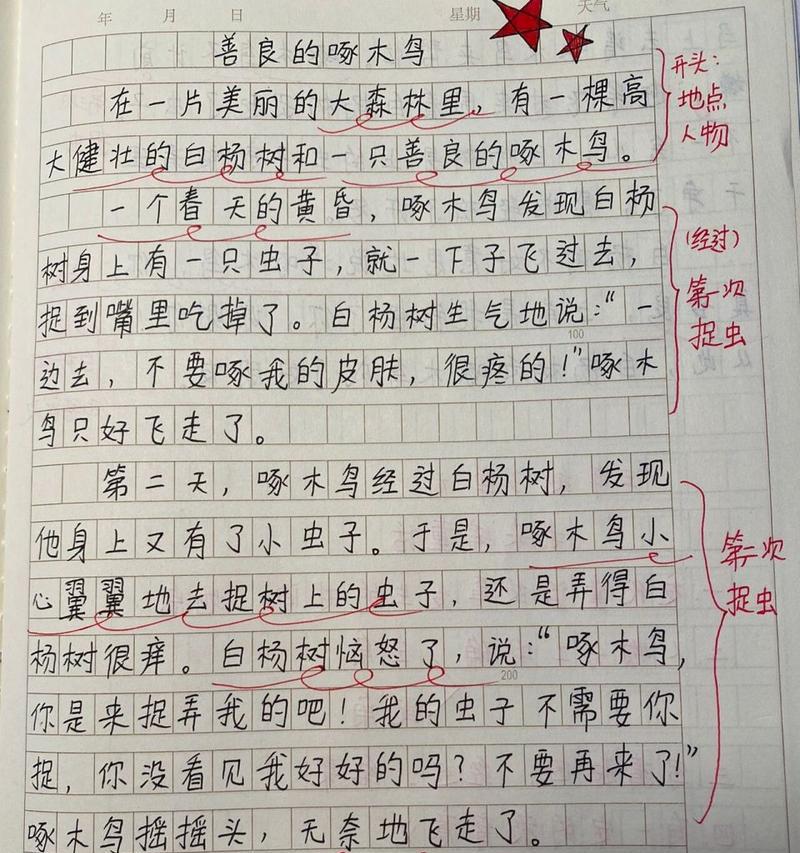 年 月 日 星期 天气
善良的啄木鸟
在一片美丽的大森林里，有一棵高
大健壮的白杨树和一只善良的啄木鸟。
开头：
地点
人物
一个春天的黄昏，啄木鸟发现白杨
树身上有一只虫子，就一下子飞过去，
捉到嘴里吃掉了。白杨树生气地说：“一
100
边去，不要啄我的皮肤，很疼的！”啄木
鸟只好飞走了。
（经过）
第一次
捉虫
第二天，啄木鸟经过白杨树，发现
他身上又有了小虫子。于是，啄木鸟小
心翼翼地去捉树上的虫子，还是弄得白
杨树很痒。白杨树恼怒了，说：“啄木鸟，
200
你是来捉弄我的吧！我的虫子不需要你
捉，你没看见我好好的吗？不要再来了！”
啄木鸟摇摇头，无奈地飞走了。
第二次
捉虫